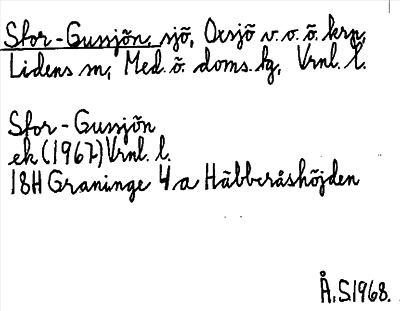 Stor-Gussjön, sjö, Oxsjö v.o.ö. krn,
Lidens sn, Med.ö. doms.hg, Vrnl. l.
Stor-Gussjön
ek (1967) Vrnl. l.
18H Graninge 4 a Häbberåshöjden
Å.S.1968.